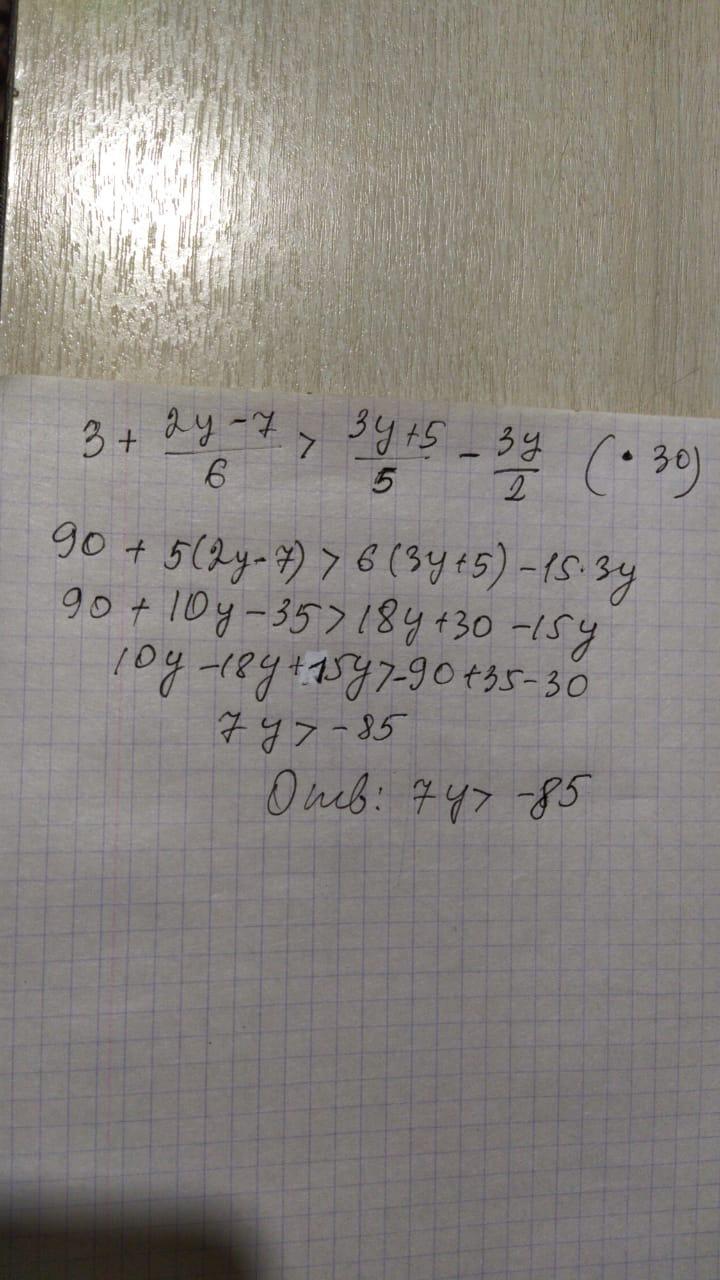 3 + (2y - 7)/6 > (3y + 5)/5 - 3y/2 (· 30)
90 + 5(2y - 7) > 6(3y + 5) - 15·3y
90 + 10y - 35 > 18y + 30 - 15y
10y - 18y + 15y > -90 + 35 - 30
7y > -85
Отв: 7y > -85